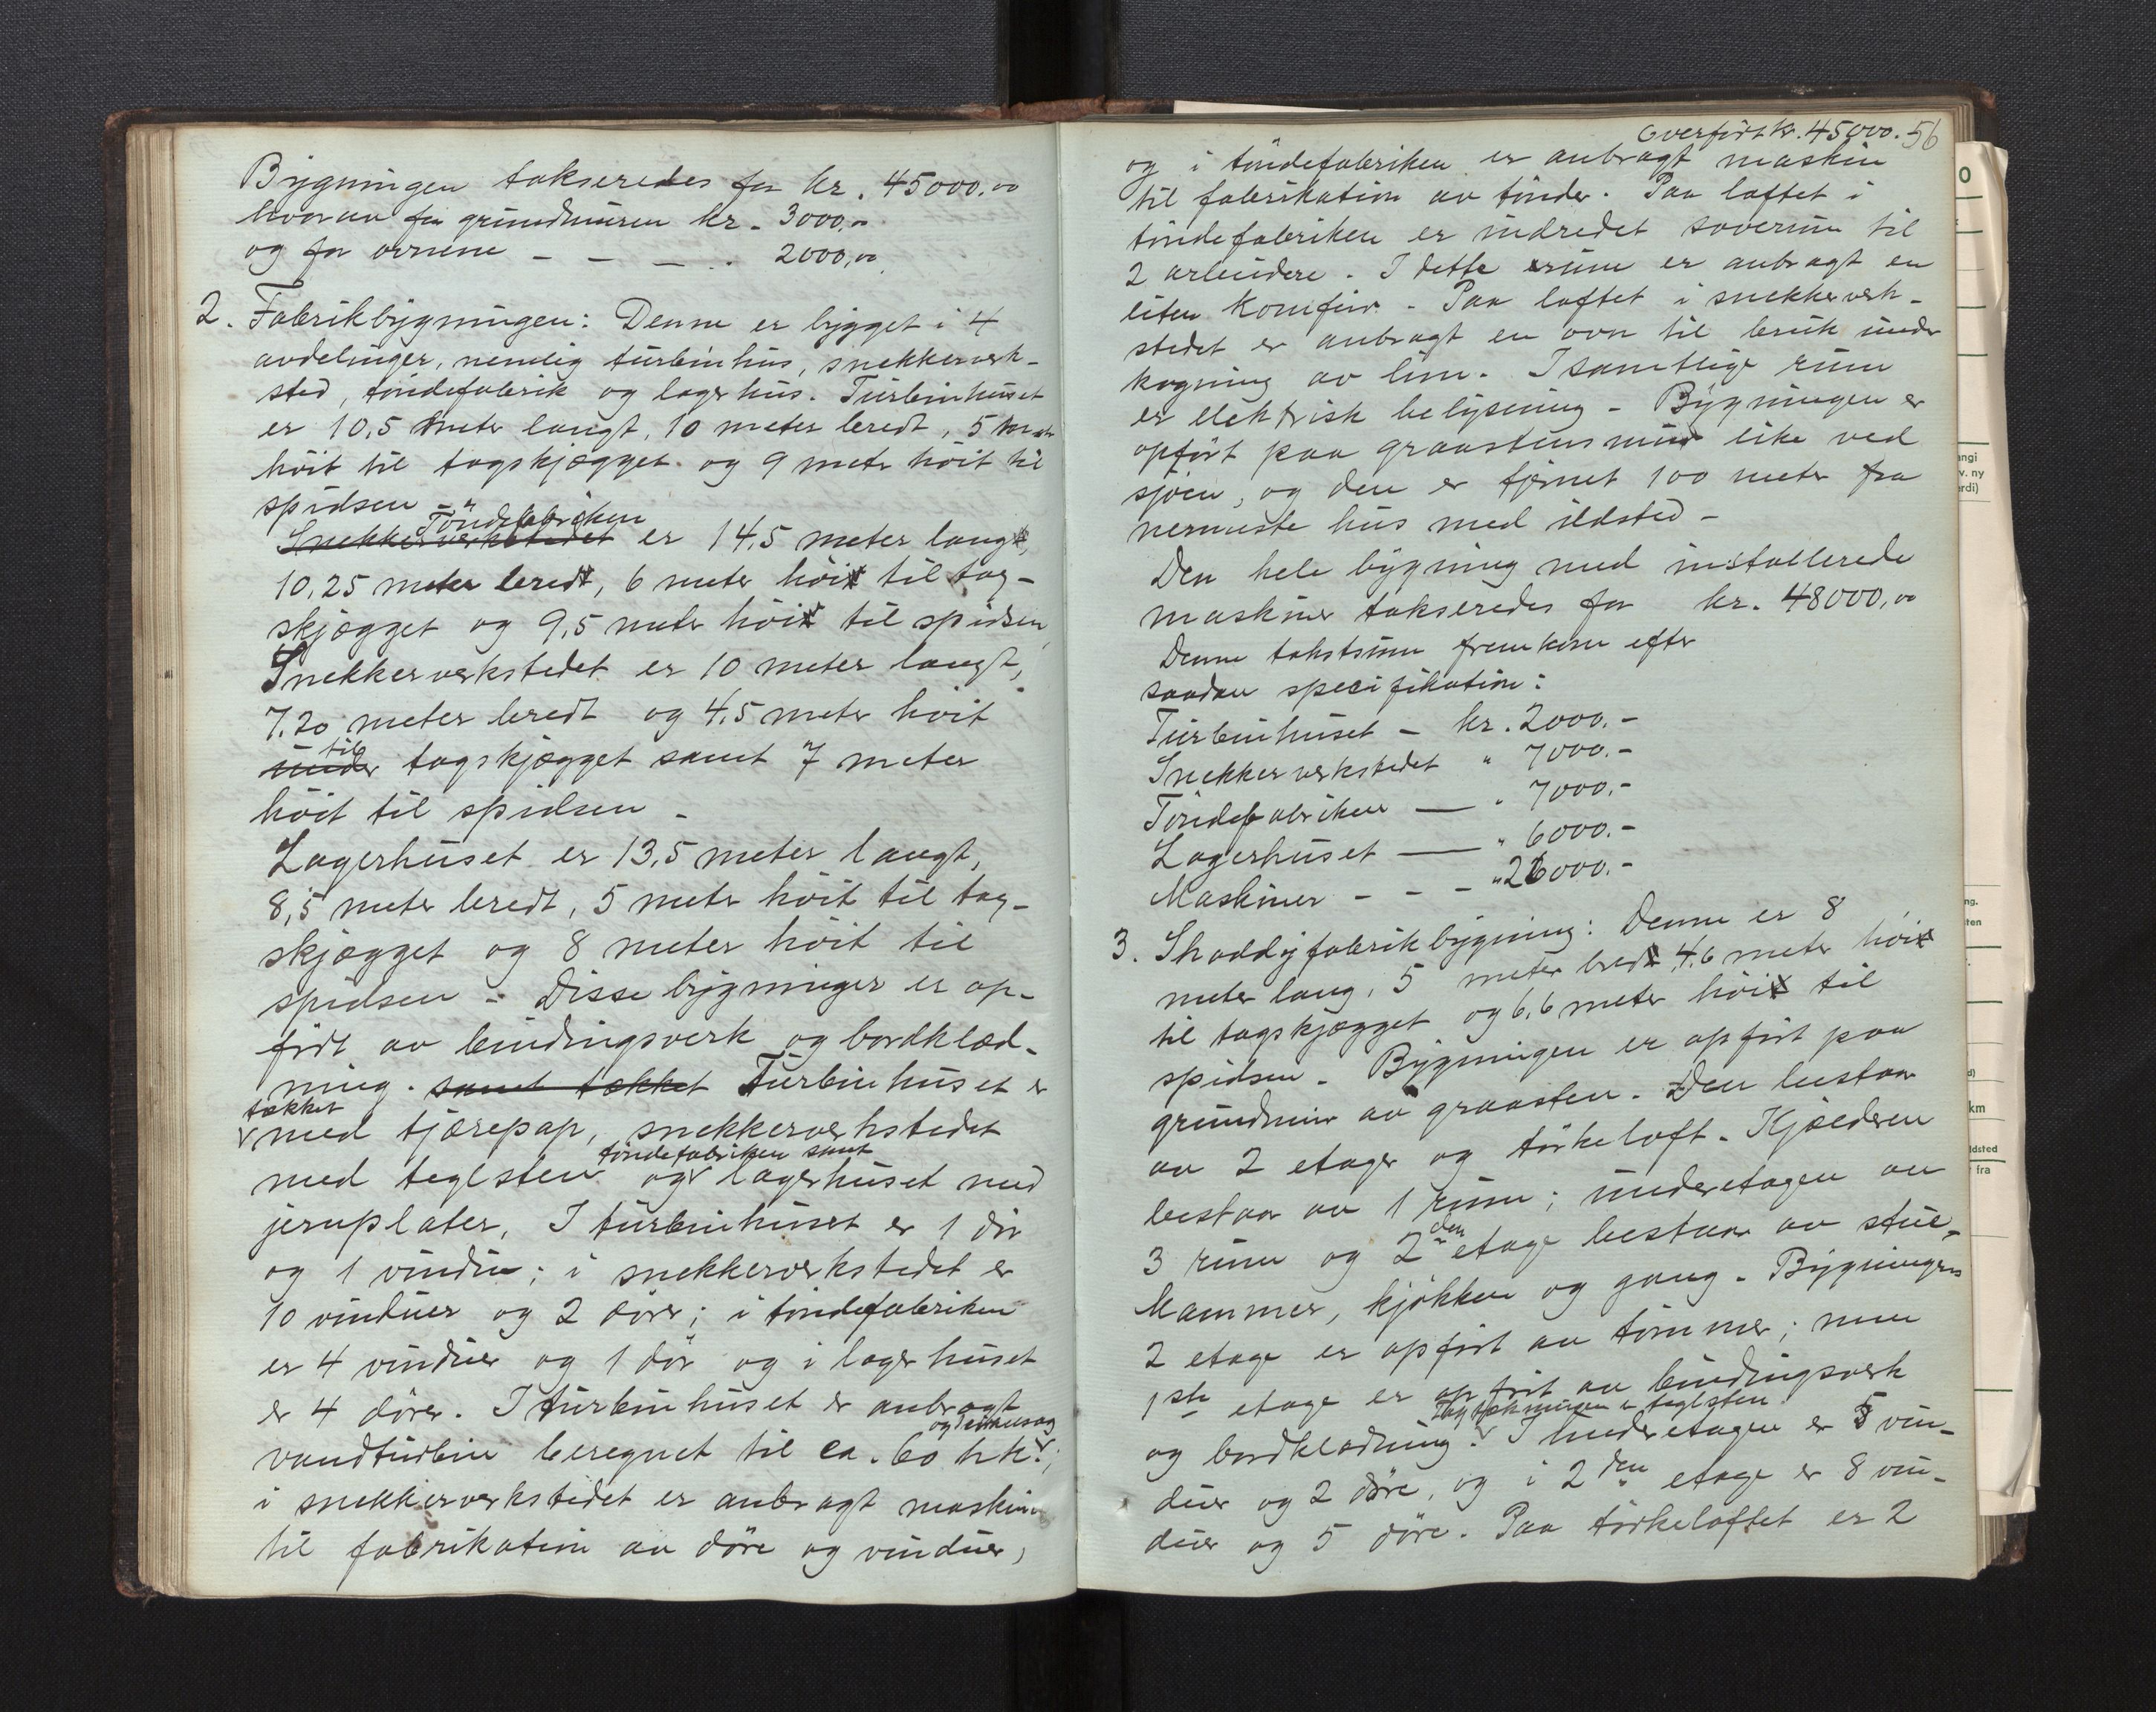 Bygningen takseredes for kr. 45000,00
hvorav for grundmuren kr. 3000,00
og for ovnene - - - .. 2000,00
2. Fabrikbygningen: Denne er bygget i 4
avdelinger, nemlig turbinhus, snekkerverk-
sted, töndefabrik og lagerhus. Turbinhuset
er 10,5 meter langt, 10 meter bredt, 5 meter
höit til tagskjægget og 9 meter höit til
spidsen -
Töndefabriken
Snekkerverkstedet er 14,5 meter langt,
10,25 meter bredt, 6 meter höit til tag-
skjægget og 9,5 meter höit til spidsen,
Snekkerverkstedet er 10 meter langt,
7.20 meter bredt og 4,5 meter höit
til
under tagskjægget samt 7 meter
höit til spidsen -
Lagerhuset er 13,5 meter langt,
8,5 meter bredt, 5 meter höit til tag-
skjægget og 8 meter höit til
spidsen - Disse bygninger er op-
fört av bindingsverk og bordklæd-
ning. samt tækket Turbinhuset er
tækket
med tjærepap, snekkerverkstedet
töndefabriken samt
med teglsten og lagerhuset med
jernplater, I turbinhuset er 1 dör
og 1 vindu; i snekkerverkstedet er
10 vinduer og 2 döre; i töndefabriken
er 4 vinduer og 1 dör og i lagerhuset
er 4 dörer. I turbinhuset er anbragt
og
vandturbin beregnet til ca. 60 hk.;
i snekkerverkstedet er anbragt maskiner
til fabrikation av döre og vinduer,
Overfört kr. 45000. 56
og i töndefabriken er anbragt maskin
til fabrikation av tönder. Paa loftet i
töndefabriken er indredet soverum til
2 arbeidere. I dette rum er anbragt en
liten komfur. Paa loftet i snekkerverk-
stedet er anbragt en ovn til bruk under
kogning av lim. I samtlige rum
er elektrisk belysning - Bygningen er
opfört paa graastensmur like ved
sjöen, og den er fjernet 100 meter fra
nermeste hus med ildsted -
Den hele bygning med installerede
maskiner takseredes for kr. 48000,00
Denne takstsum fremkom efter
saadan specifikation:
Turbinhuset - kr. 2000.-
Snekkerverkstedet " 7000.-
Töndefabriken — " 7000.-
Lagerhuset — " 6000.-
Maskiner - - - " 26000.-
3. Shoddyfabrikbygning: Denne er 8
meter lang, 5 meter bred, 4,6 meter höi
til tagskjægget og 6,6 meter höi til
spidsen - Bygningen er opfört paa
grundmur av graasten. Den bestaar
av 2 etager og törkeloft. Kjælderen
bestaar av 1 rum; underetagen av
3 rum og 2den etage bestaar av stue,
kammer, kjökken og gang. Bygningens
2 etage er opfört av tömmer; men
1ste etage er opfört av bindingsverk
Tagtækningen er teglsten.
og bordklædning. I underetagen er 5 vin-
duer og 2 döre, og i 2den etage er 8 vin-
duer og 5 döre. Paa törkeloftet er 2